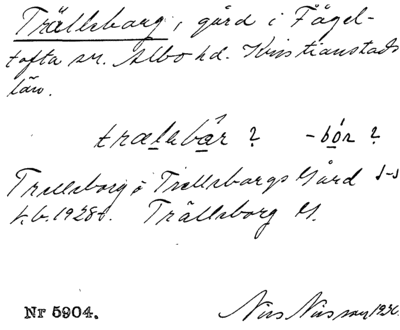 Trälleborg, gård i Fågel-
tofta sn. Albo hd. Kristianstads
län.
trælebår ? -bór ?
Trelleborg o Trelleborgs Gård J-s
f.b. 1928. Trälleborg G.
Nr 5904.
Nils Nilsson 1930.